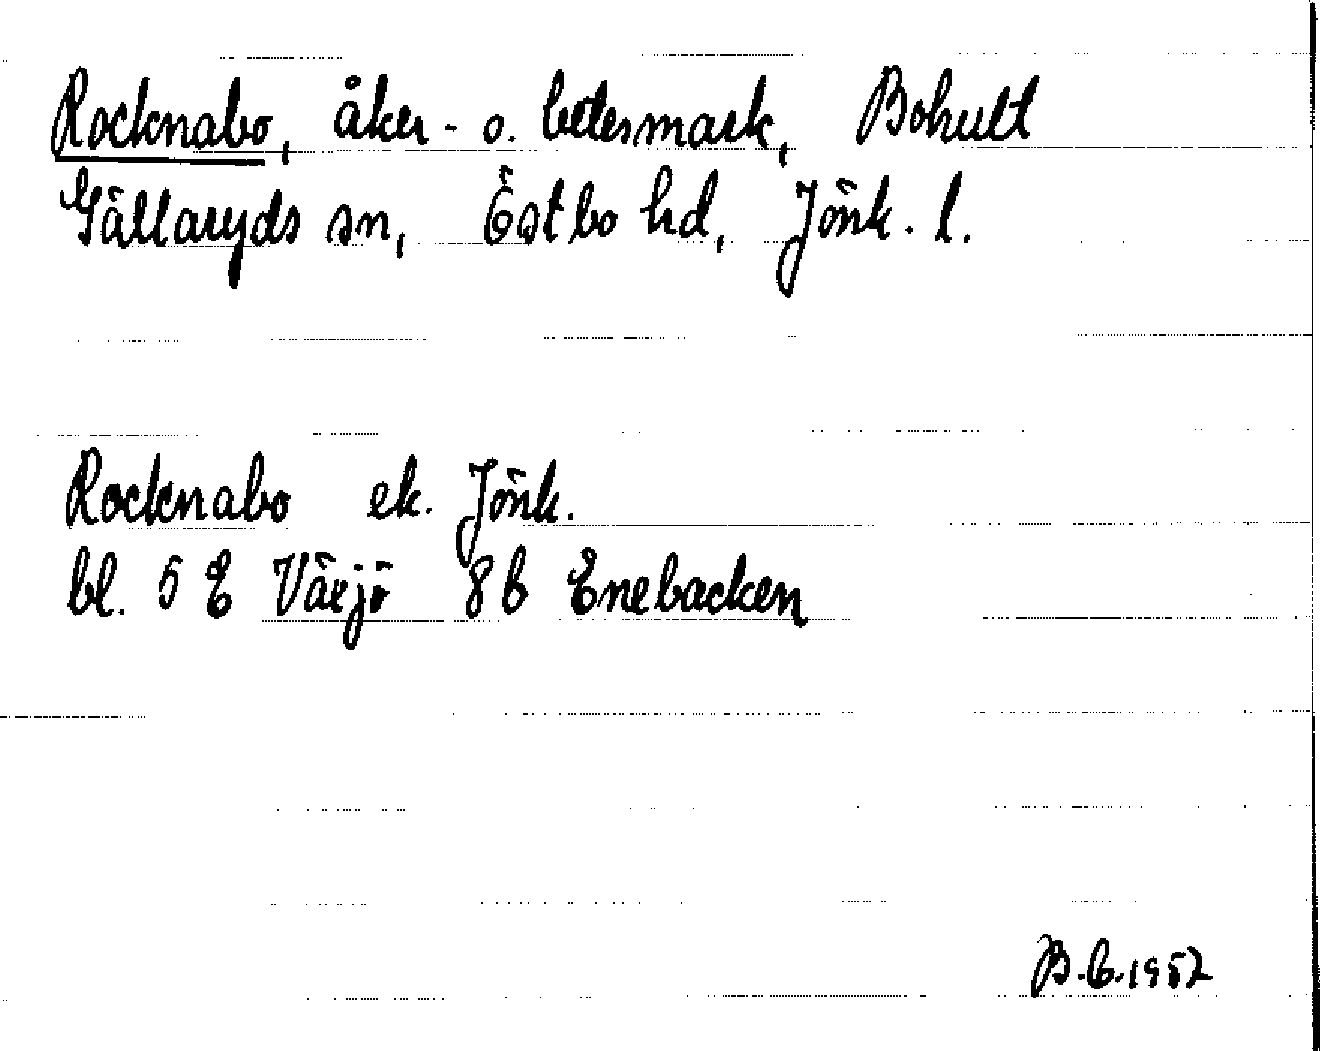 Rocknabo, åker- o. betesmark, Bohult
Gällaryds sn, Östbo hd, Jönk. l.
Rocknabo ek. Jönk.
bl. 5 E Växjö 8 b Enebacken
B.E. 1952